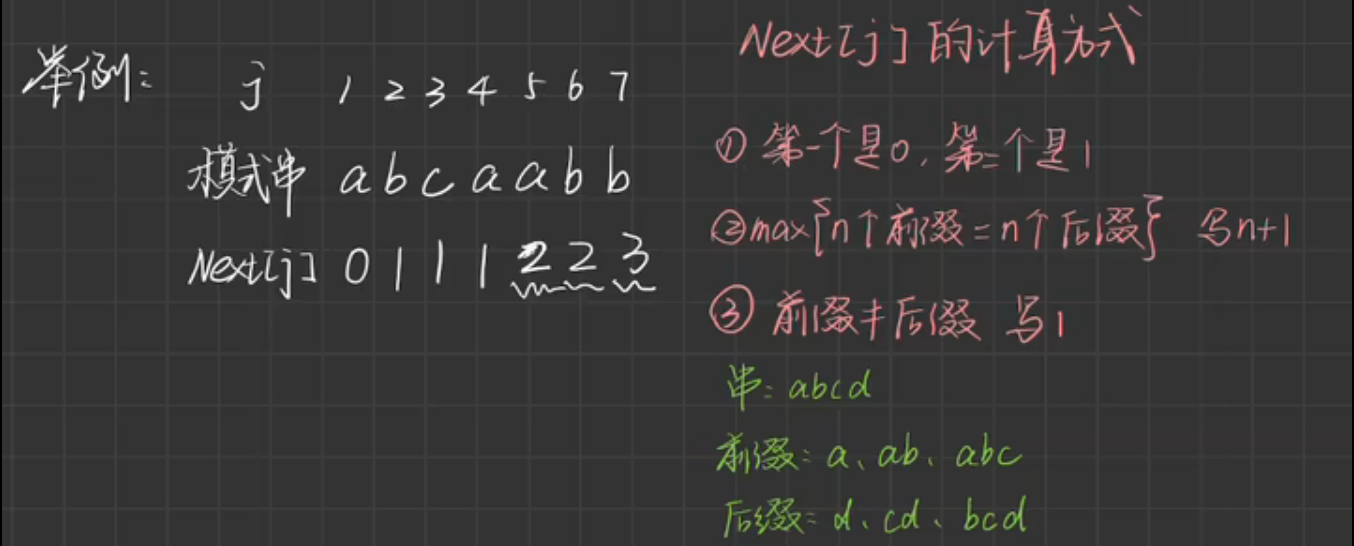 举例: j 1 2 3 4 5 6 7
模式串 a b c a a b b
Next[j] 0 1 1 1 2 2 3
Next[j]的计算方式
① 第一个是0, 第二个是1
②max{n个前缀=n个后缀} 写n+1
③ 前缀≠后缀 写1
串: abcd
前缀: a、ab、abc
后缀: d、cd、bcd